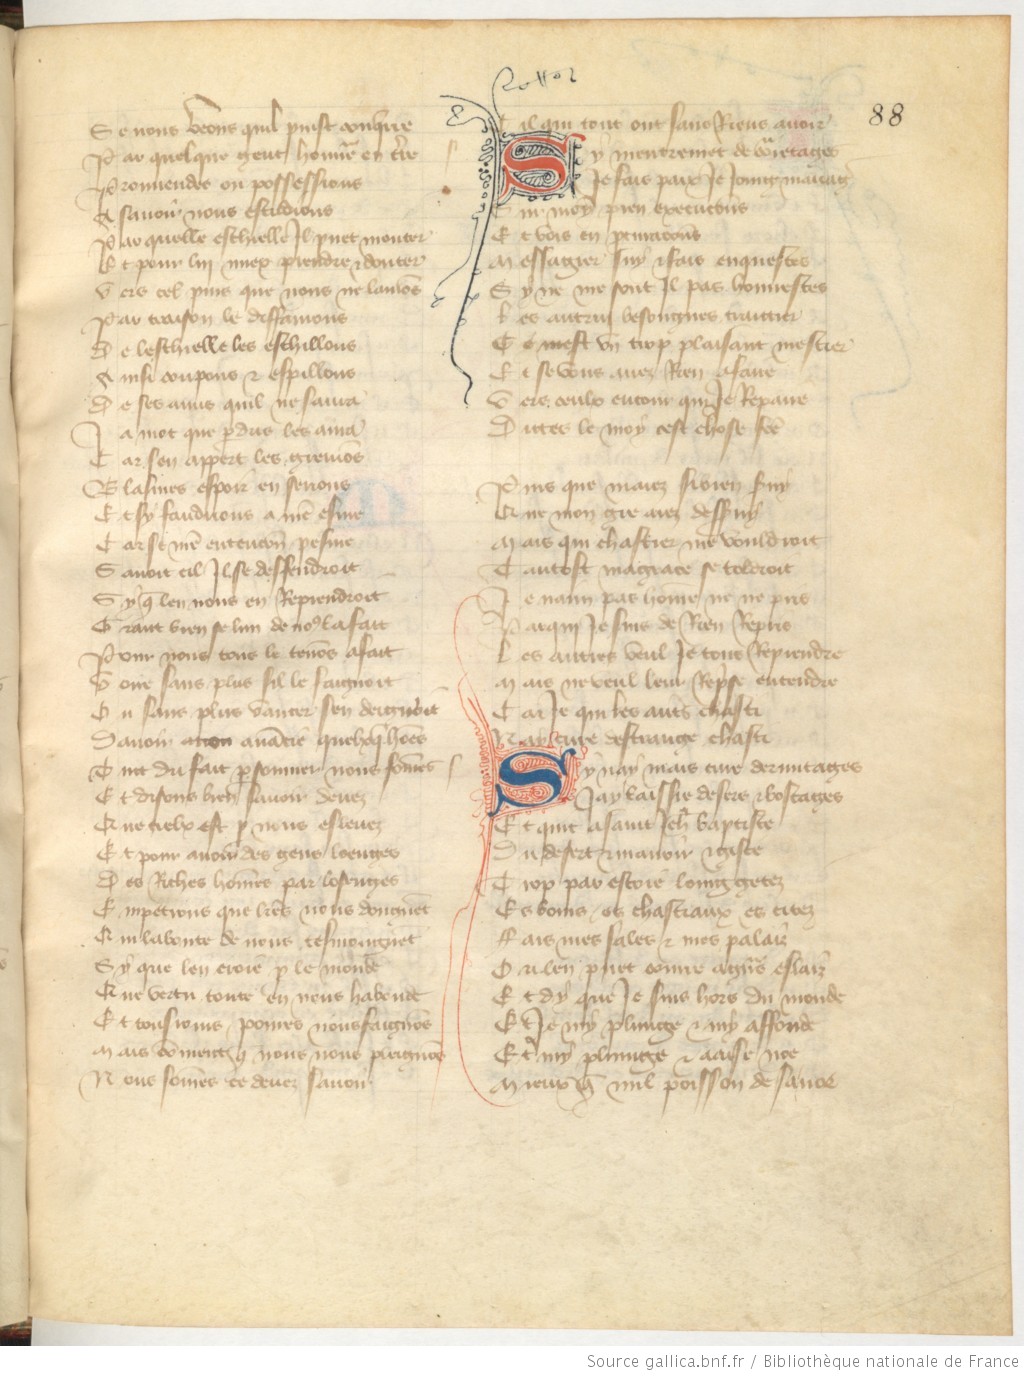 88
Se nous veons quil puist conquerre
Par quelque gent honneur en terre
Prouuendes ou possessions
A sauoir nous estudions
Par quelle eschielle Il puet monter
Et pour lui miex prendre & donter
Vers cel puis que nous ne lamons
Par traison le diffamons
De leschielle les eschillons
Ainsi coupons & espillons
De ses amis quil ne saura
Ja mot que perdus les aura
Car sen appert les greuions
Blasmes espoir en serions
Et sy faudrions a nre esme
Car se nre entencion pesme
Sauoit cil Il se deffendroit
Sy que len nous en Reprendroit
Grant bien se lun de nous la fait
Par nous tous le tenons a fait
Voire sans plus sil le faignoit
Ou sans plus vanter sen deignoit
Dauoir auancie quelzque hommes
Tuit du fait parsonnier nous sommes
Et disons bien sauoir deuez
Que tielx est par nous esleuez
Et pour auoir des gens loenges
Des Riches hommes par losenges
Empetrons que lettres nous doignent
Qui la bonte de nous tesmoingnent
Sy que len croie par le monde
Que vertu toute en nous habonde
Et tousiours poures nous faignons
Mais comment que nous nous plaignons
Nous sommes ce deuez sauoir
Cil qui tout ont sans Riens auoir
Sy mentremet de courretages
Je fais paix Je Joing mariages
Sur moy pren execucions
Et vois en procuracions
Messagier suy & fais enquestes
Sy ne me sont Il pas honnestes
Les autrui besoingnes traittier
Ce mest vn trop plaisant mestier
Et se vous auez Rien a faire
Vers ceulx entour qui Je Repaire
Dittes le moy cest chose fete
Puis que mauez si bien seruy
Que mon gre auez desseruy
Mais qui chastier me vouldroit
Tantost ma grace se toldroit
Je naim pas homme ne ne pris
Par qui Je suis de Rien Repris
Les autres veul Je tous Reprendre
Mais ne veul leur Reprise entendre
Car Je qui les autres chasti
Nay cure destrange chasti
Sy nay mais cure dermitages
Jay laissie desers & boscages
Et quit a saint Jehan baptiste
Du desert & manoir & giste
Trop par estoie loing getez
Es bours es chastiaux es citez
Fais mes sales & mes palaiz
Ou len puet courre a grans eslaiz
Et dy que Je suis hors du monde
Et Je my plunge & my affonde
Et my plunge & aaise & noe
Mieux que nul poisson de sa noe
Source gallica.bnf.fr / Bibliothèque nationale de France